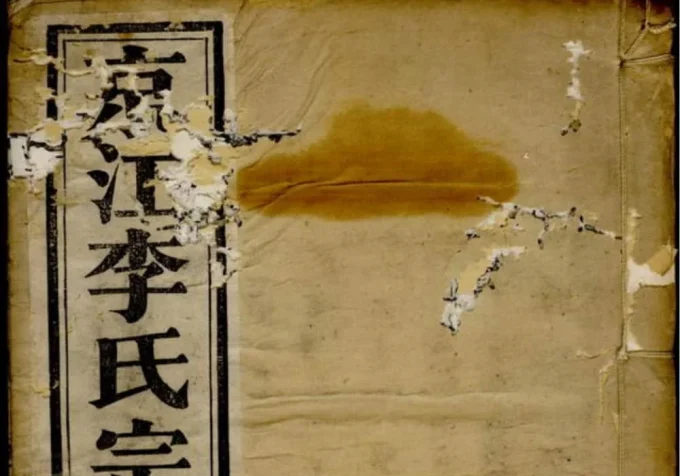 京江李氏宗